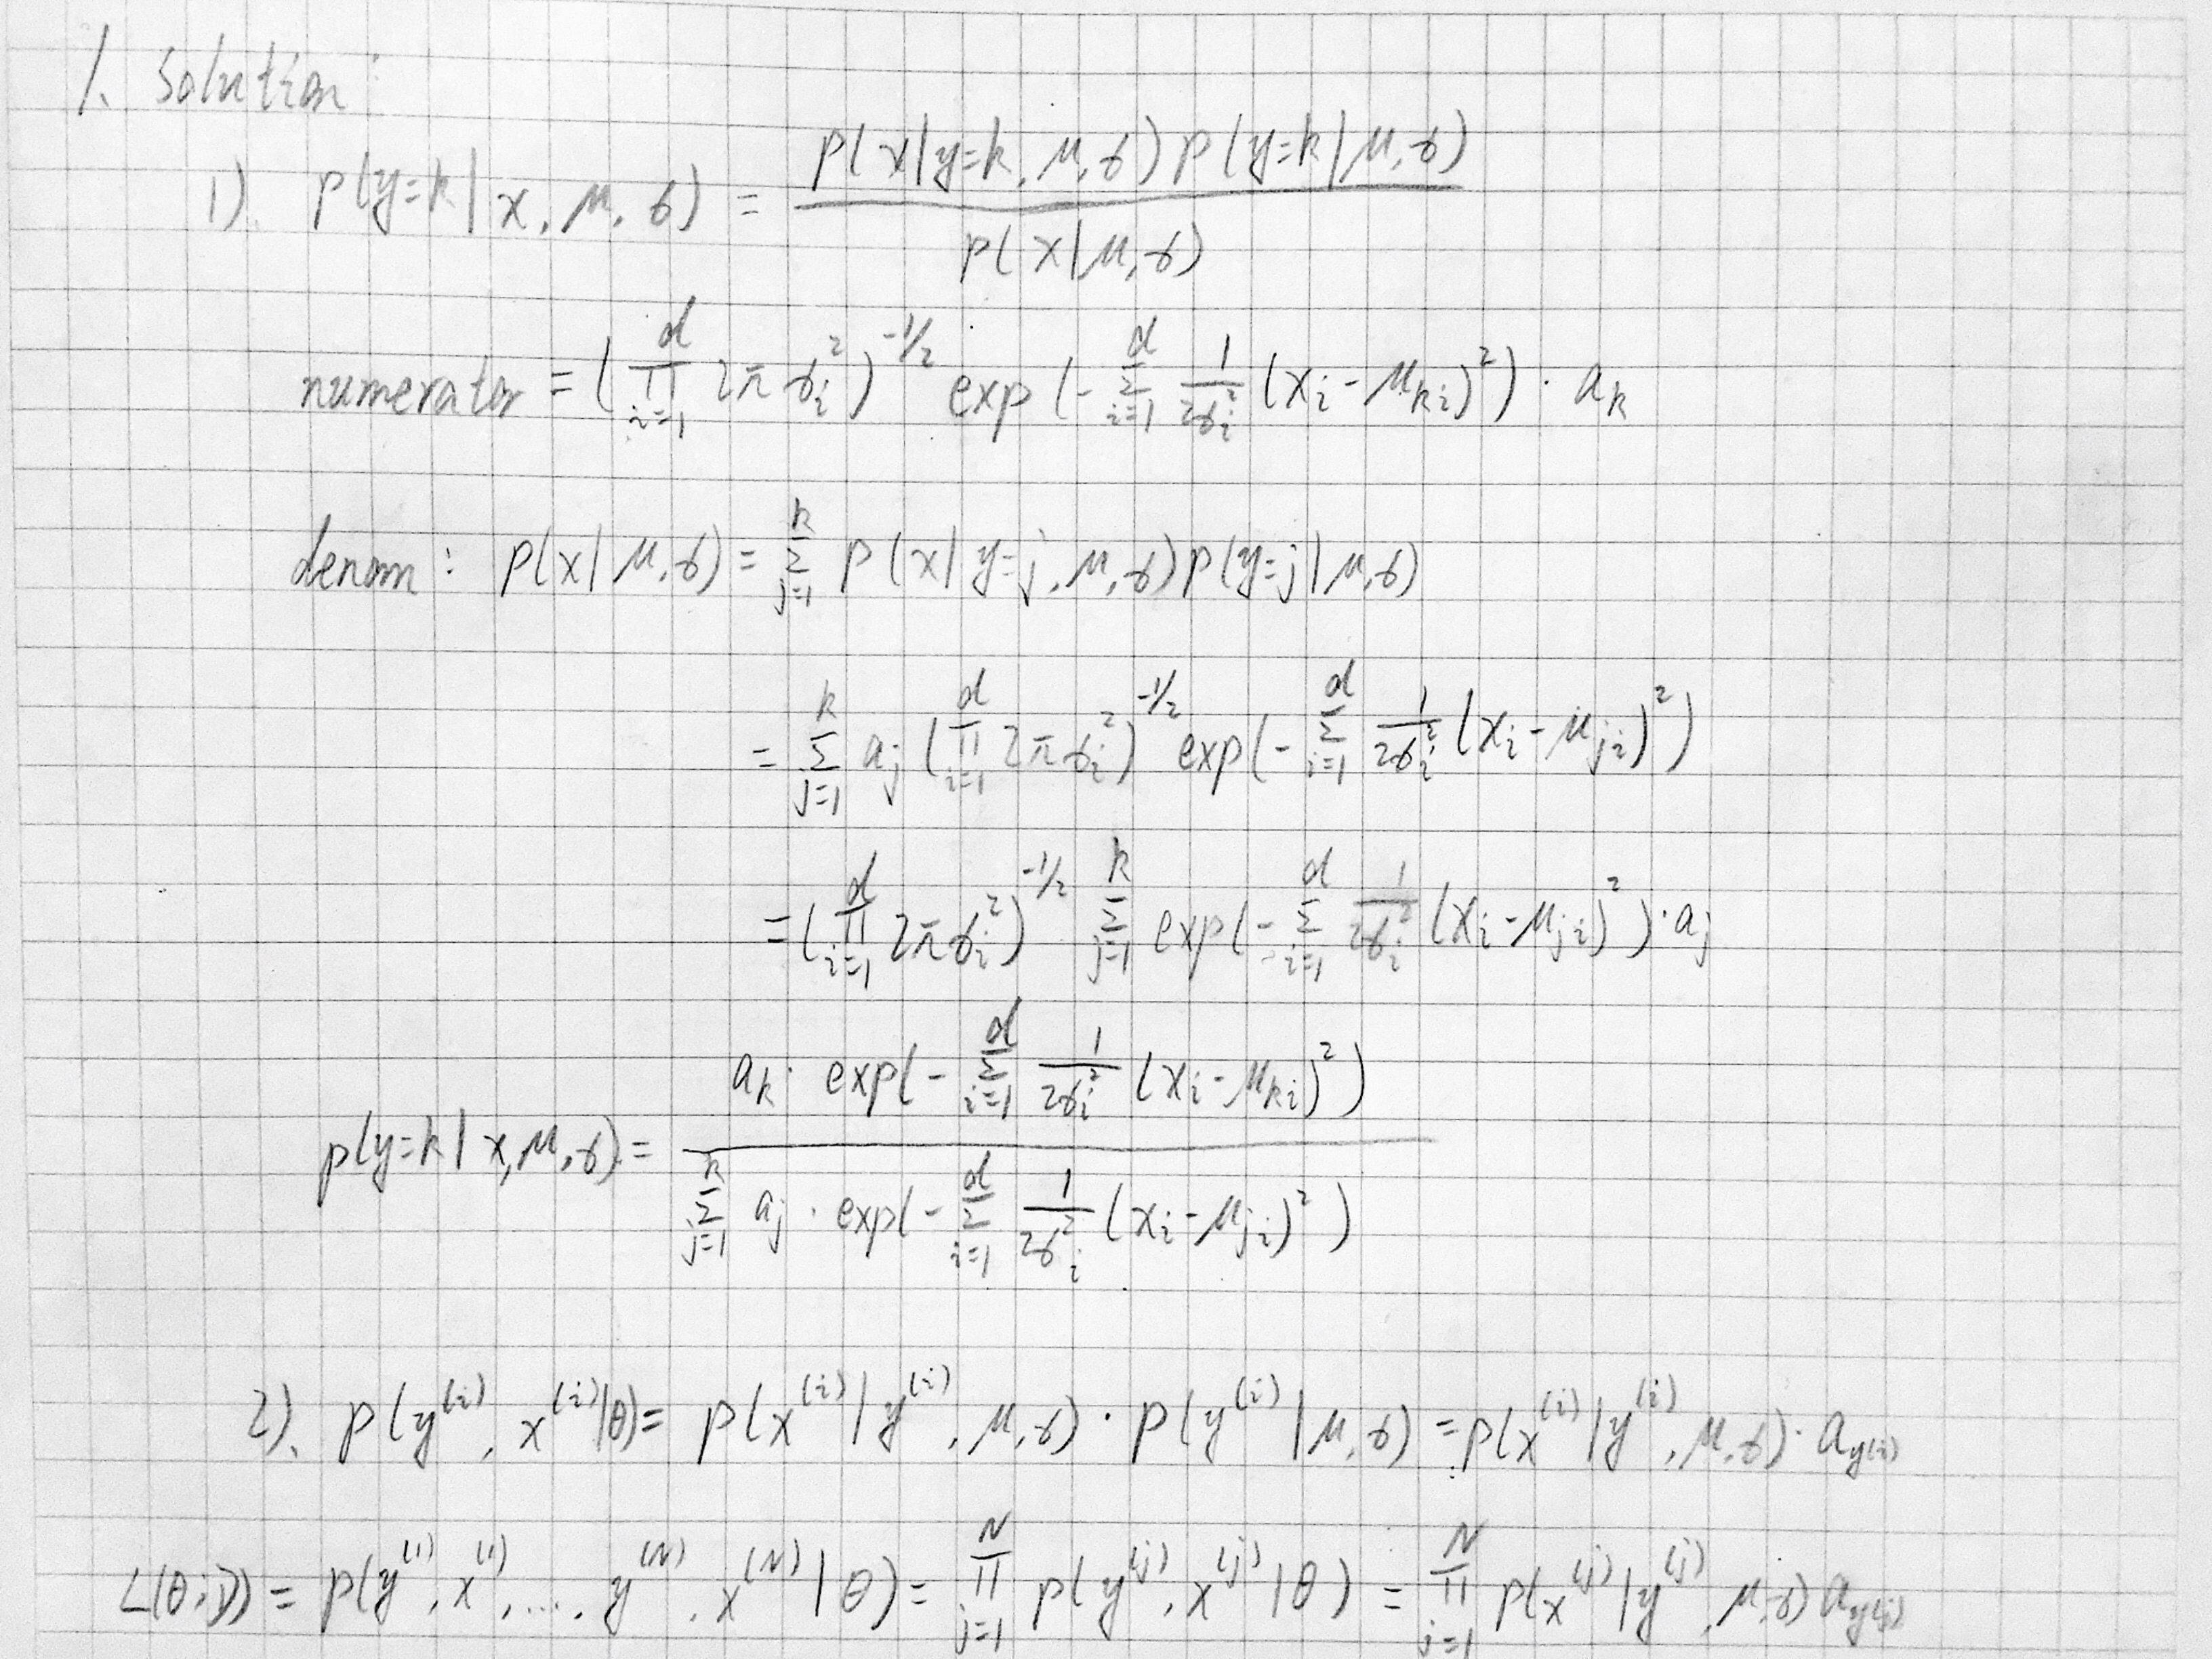 1. Solution:
1). p(y=k | x, μ, σ) = p(x|y=k, μ, σ) p(y=k | μ, σ) / p(x | μ, σ)
numerator = (∏_{i=1}^{d} 2π σ_i^2)^{-1/2} exp(-∑_{i=1}^{d} 1/(2σ_i^2) (x_i - μ_{ki})^2) · a_k
denom : p(x | μ, σ) = ∑_{j=1}^{k} p(x | y=j, μ, σ) p(y=j | μ, σ)
= ∑_{j=1}^{k} a_j (∏_{i=1}^{d} 2π σ_i^2)^{-1/2} exp(-∑_{i=1}^{d} 1/(2σ_i^2) (x_i - μ_{ji})^2)
= (∏_{i=1}^{d} 2π σ_i^2)^{-1/2} ∑_{j=1}^{k} exp(-∑_{i=1}^{d} 1/(2σ_i^2) (x_i - μ_{ji})^2) · a_j
p(y=k | x, μ, σ) = a_k · exp(-∑_{i=1}^{d} 1/(2σ_i^2) (x_i - μ_{ki})^2) / ∑_{j=1}^{k} a_j · exp(-∑_{i=1}^{d} 1/(2σ_i^2) (x_i - μ_{ji})^2)
2). p(y^{(i)}, x^{(i)} | θ) = p(x^{(i)} | y^{(i)}, μ, σ) · p(y^{(i)} | μ, σ) = p(x^{(i)} | y^{(i)}, μ, σ) · a_{y^{(i)}}
L(θ; D) = p(y^{(1)}, x^{(1)}, ..., y^{(N)}, x^{(N)} | θ) = ∏_{j=1}^{N} p(y^{(j)}, x^{(j)} | θ) = ∏_{j=1}^{N} p(x^{(j)} | y^{(j)}, μ, σ) a_{y^{(j)}}